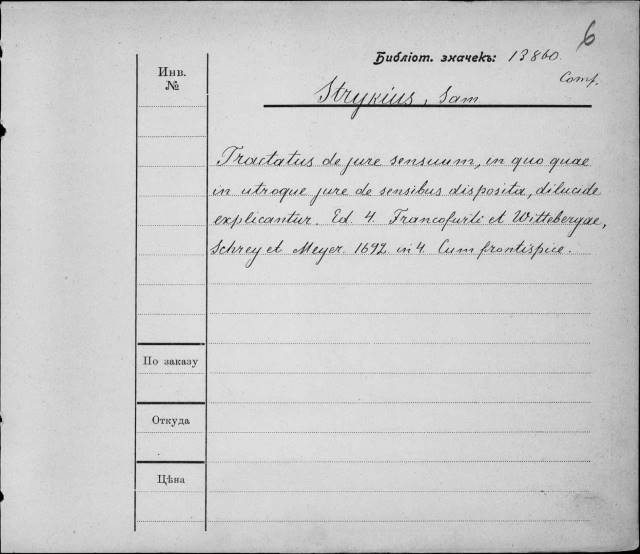 6
Библіот. значекъ: 13860.
Comp.
Инв.
№
Strykius, Sam
Tractatus de jure sensuum, in quo quae
in utroque jure de sensibus disposita, dilucide
explicantur. Ed 4. Francofurti et Wittebergae,
Schrey et Meyer. 1692. in 4. Cum frontispice.
По заказу
Откуда
Цѣна